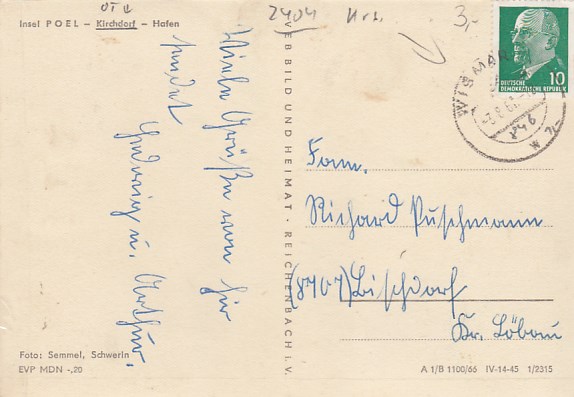 OT
Insel POEL – Kirchdorf – Hafen
2404 Krs.
3,-
DEUTSCHE
DEMOKRATISCHE REPUBLIK
10
WISMAR
Viele Grüße von hier
sendet
Hedwig u. Arthur.
VEB BILD UND HEIMAT · REICHENBACH I. V.
Fam.
Richard Puschmann
(8707) Bischdorf
Kr. Löbau
Foto: Semmel, Schwerin
EVP MDN -,20
A 1/B 1100/66 IV-14-45 1/2315